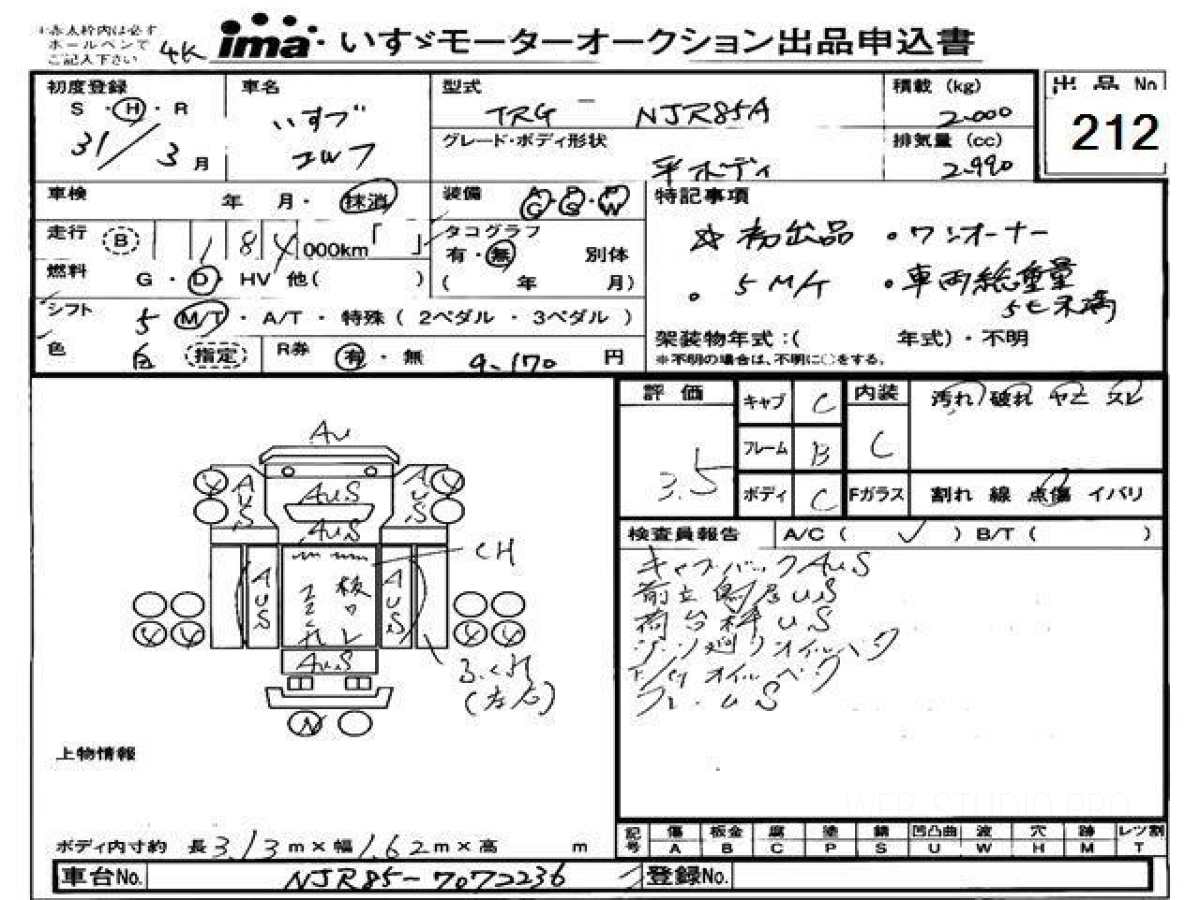 ※赤太枠内は必ず
ボールペンで
ご記入下さい
4K ima いすゞモーターオークション出品申込書
初度登録 S・H・R 31/3月
車名 いすゞ エルフ
型式 TRG - NJR85A
積載 (kg) 2.000
グレード・ボディ形状 平ボディ
排気量 (cc) 2.990
出品No
212
車検 年 月・抹消
装備 AC・PS・PW
特記事項
☆初出品 ・ワンオーナー
・5M/T ・車両総重量
5t未満
走行 B 184,000km「 」
タコグラフ 有・無 別体
( 年 月)
燃料 G・D・HV 他( )
シフト 5 M/T・A/T・特殊(2ペダル・3ペダル)
架装物年式:( 年式)・不明
※不明の場合は、不明に○をする。
色 白 指定 R券 有・無 9,170円
評価 3.5
キャブ C
フレーム B
ボディ C
内装 C
汚れ 破れ ヤニ スレ
Fガラス 割れ 線 点傷 イバリ
検査員報告 A/C( ✓ ) B/T( )
キャブバックAUS
前立鳥居US
荷台枠US
AU
AUS
AUS
AUS
AUS
CH
AUS
AUS
AUS
(左右)
上物情報
ボディ内寸約 長3.13m×幅1.62m×高 m
記号 傷 板金 腐 塗 錆 凹凸曲 波 穴 跡 レツ割
A B C P S U W H M T
車台No. NJR85-7072236
登録No.
WEB STUDIO PRO